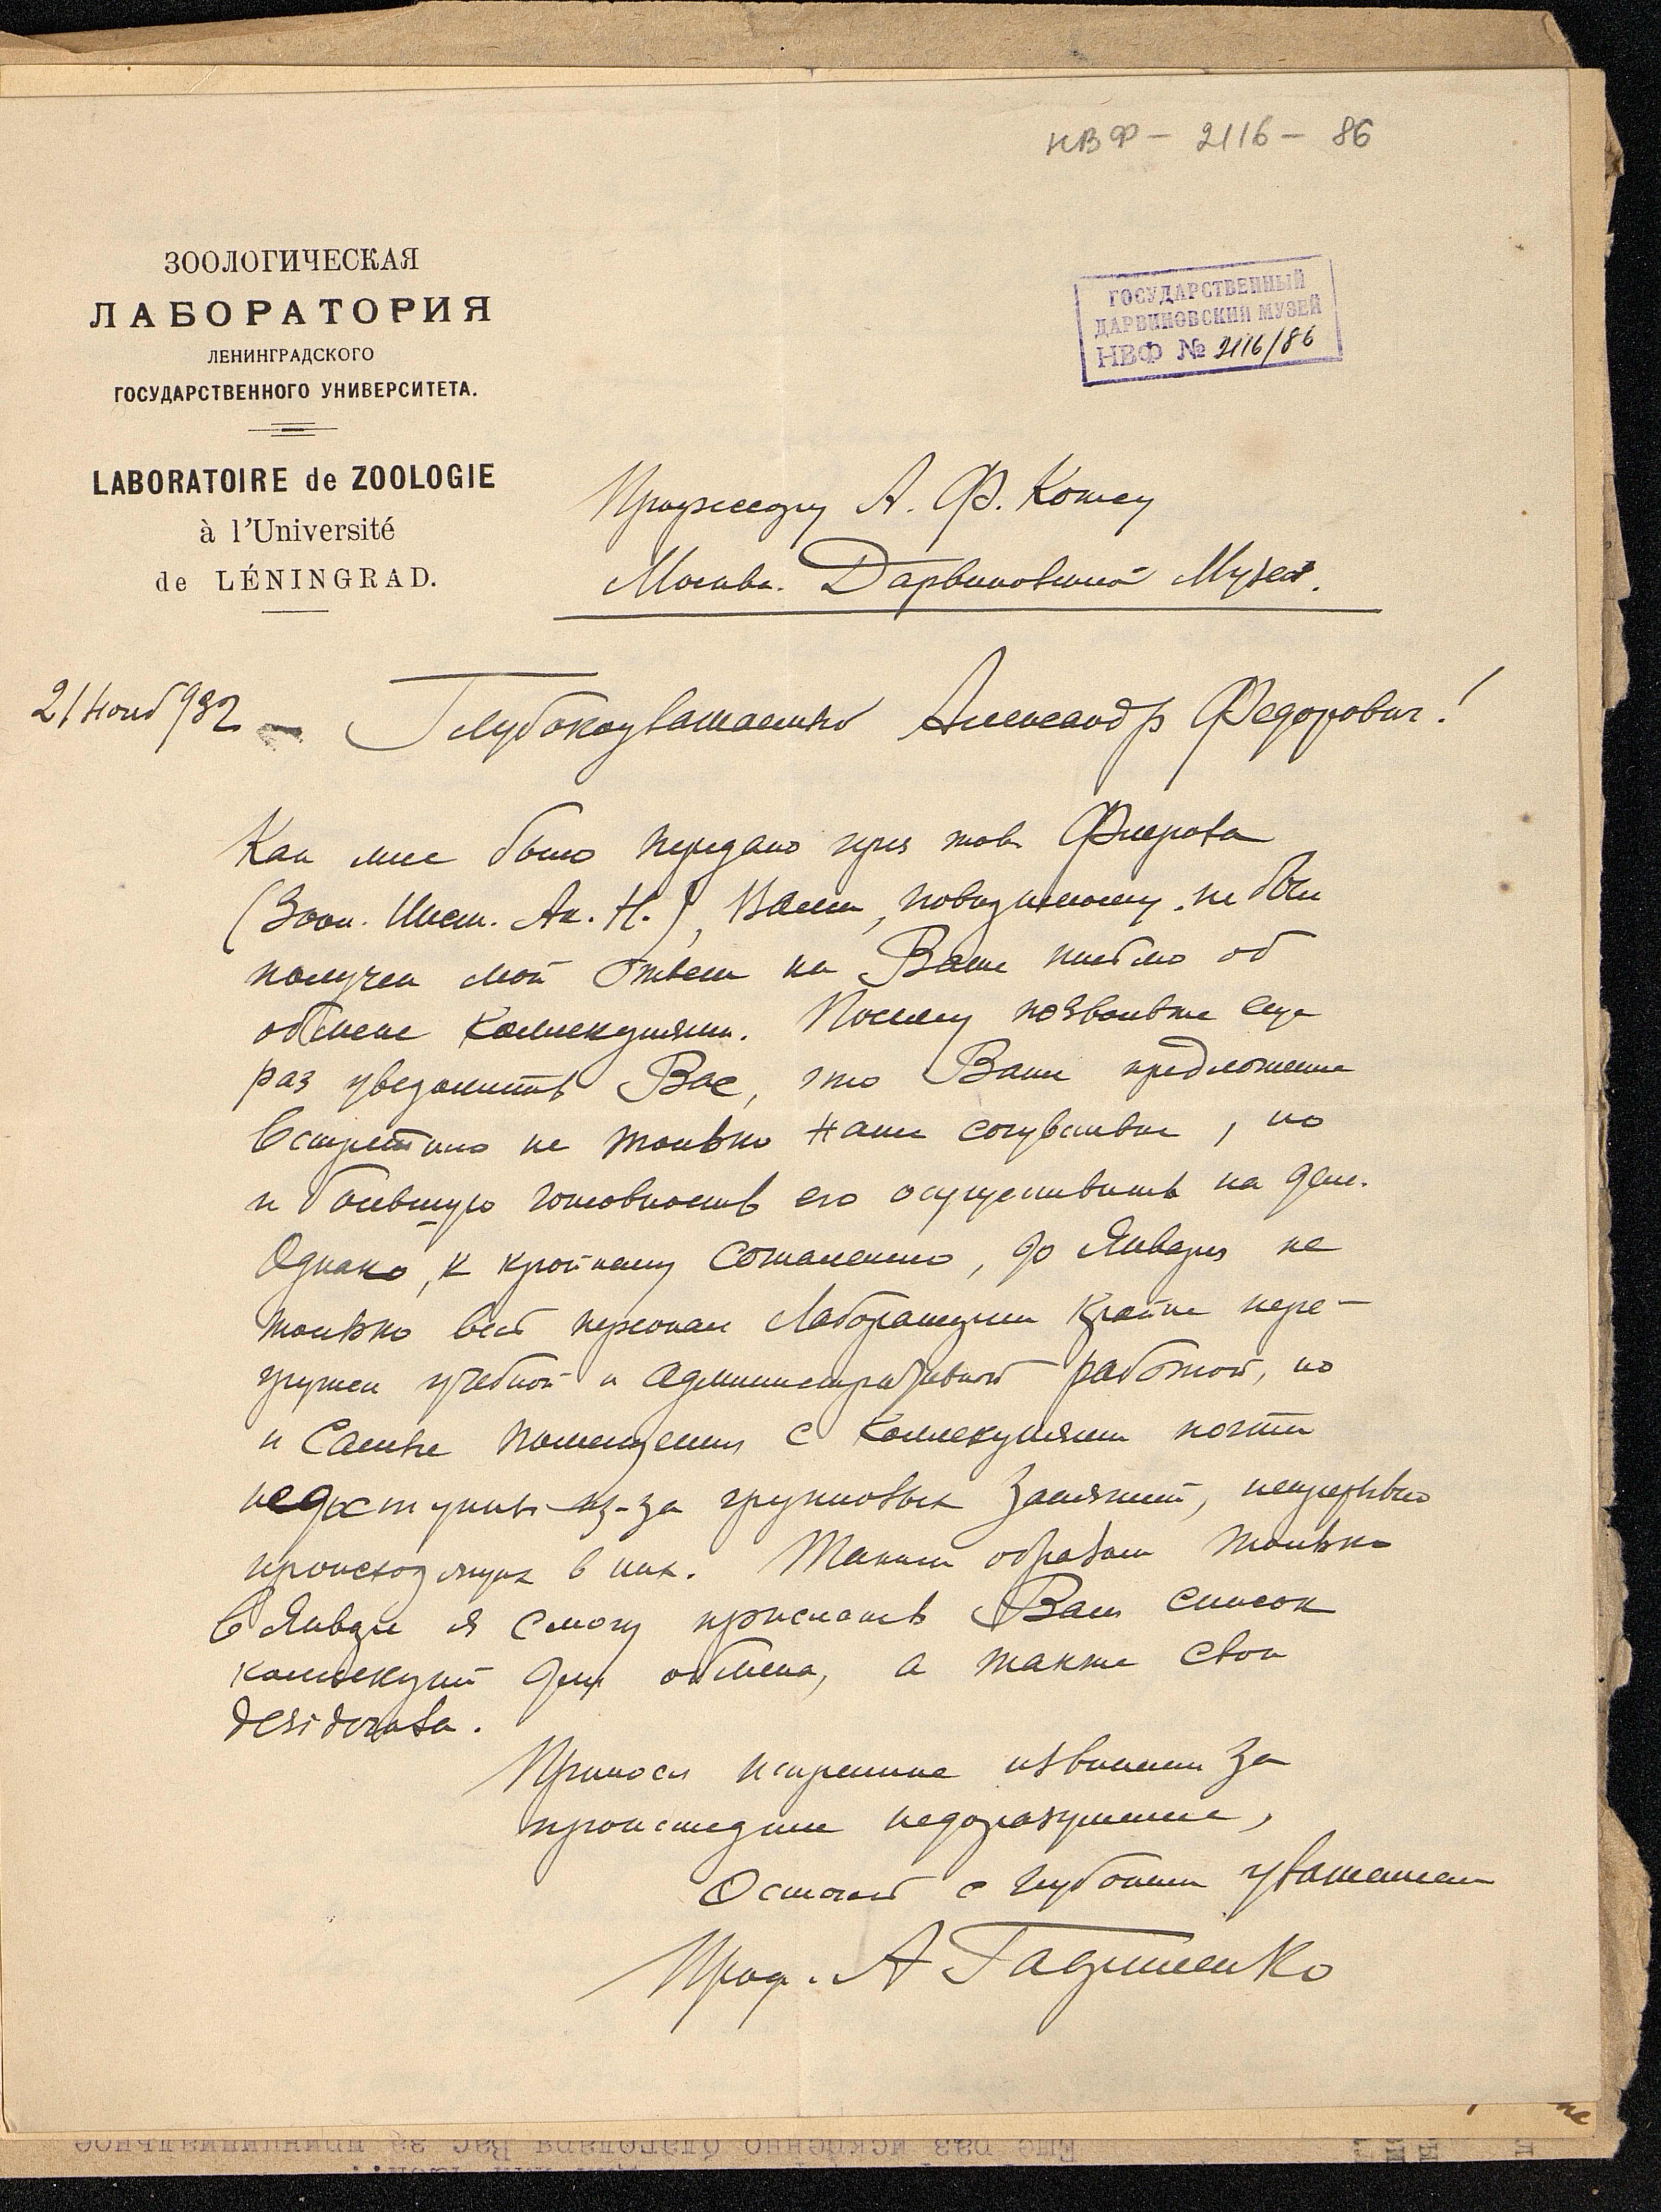 НВФ – 2116 – 86
ЗООЛОГИЧЕСКАЯ
ЛАБОРАТОРИЯ
ЛЕНИНГРАДСКОГО
ГОСУДАРСТВЕННОГО УНИВЕРСИТЕТА.
LABORATOIRE de ZOOLOGIE
à l'Université
de LÉNINGRAD.
ГОСУДАРСТВЕННЫЙ
ДАРВИНОВСКИЙ МУЗЕЙ
НВФ № 2116/86
Профессору А. Ф. Котсу
Москва. Дарвиновский Музей.
21 нояб 932
Глубокоуважаемый Александр Федорович!
Как мне было передано чрез тов. Флерова
(Зоол. Инст. Ак. Н.), Вами, повидимому, не был
получен мой ответ на Ваше письмо об
обмене коллекциями. Посему позвольте еще
раз уведомить Вас, что Ваше предложение
встретило не только наше сочувствие, но
и большую готовность его осуществить на деле.
Однако, к крайнему сожалению, до Января не
только весь персонал Лаборатории крайне пере-
гружен учебной и административной работой, но
и самые помещения с коллекциями почти
недоступны из-за групповых занятий, непрерывно
происходящих в них. Таким образом только
в Январе я смогу прислать Вам список
коллекций для обмена, а также свои
desiderata.
Принося искренние извинения за
происшедшее недоразумение,
Остаюсь с глубоким уважением
Проф. А
Еще раз искренно благодаря Вас за принципиальное